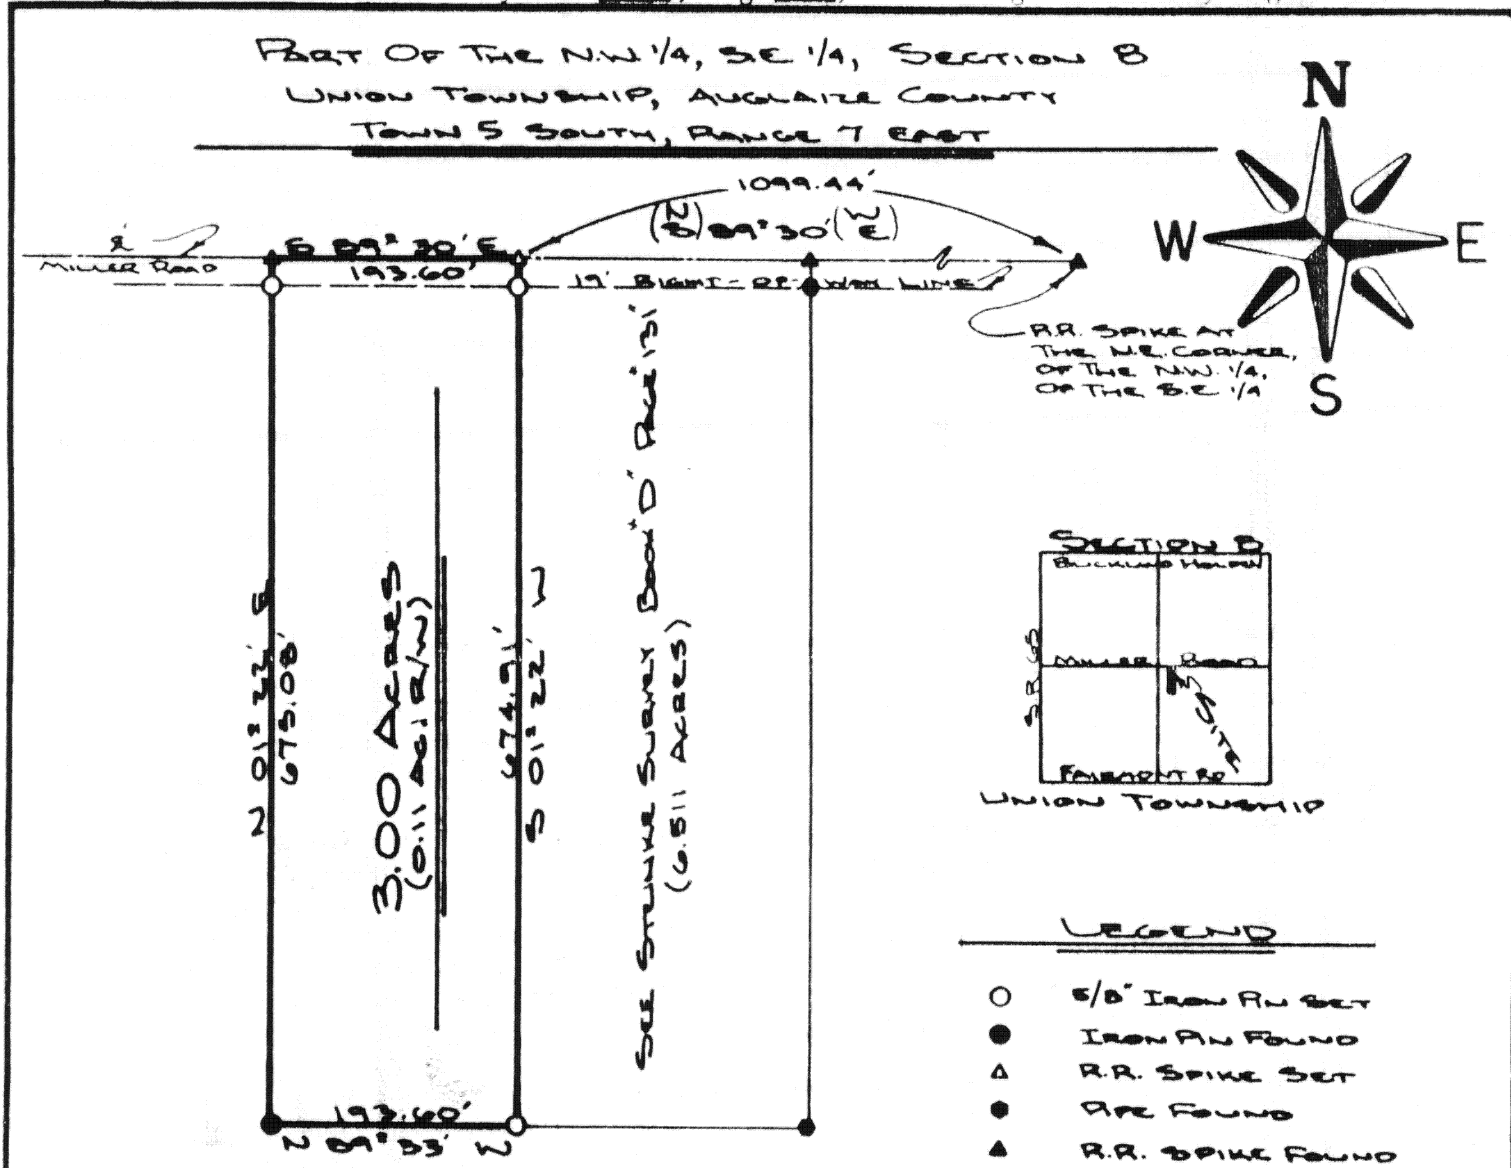 PART OF THE N.W. 1/4, S.E 1/4, SECTION 8
UNION TOWNSHIP, AUGLAIZE COUNTY
TOWN 5 SOUTH, RANGE 7 EAST
N
W
E
S
1099.44'
(N S) 89° 30' (W E)
MILLER ROAD
S 89° 30' E
193.60'
19' RIGHT-OF-WAY LINE
R.R. SPIKE AT
THE N.E. CORNER,
OF THE N.W. 1/4,
OF THE S.E 1/4
N 01° 22' E
675.08'
3.00 ACRES
(0.11 AC. R/W)
674.91'
S 01° 22' W
SEE STRUNKE SURVEY BOOK "D" PAGE 131
(6.511 ACRES)
SECTION 8
BUCKLAND HOLDEN
MILLER ROAD
SITE
FAIRMONT RD
UNION TOWNSHIP
LEGEND
5/8" IRON PIN SET
IRON PIN FOUND
R.R. SPIKE SET
PIPE FOUND
R.R. SPIKE FOUND
193.60'
N 89° 33' W